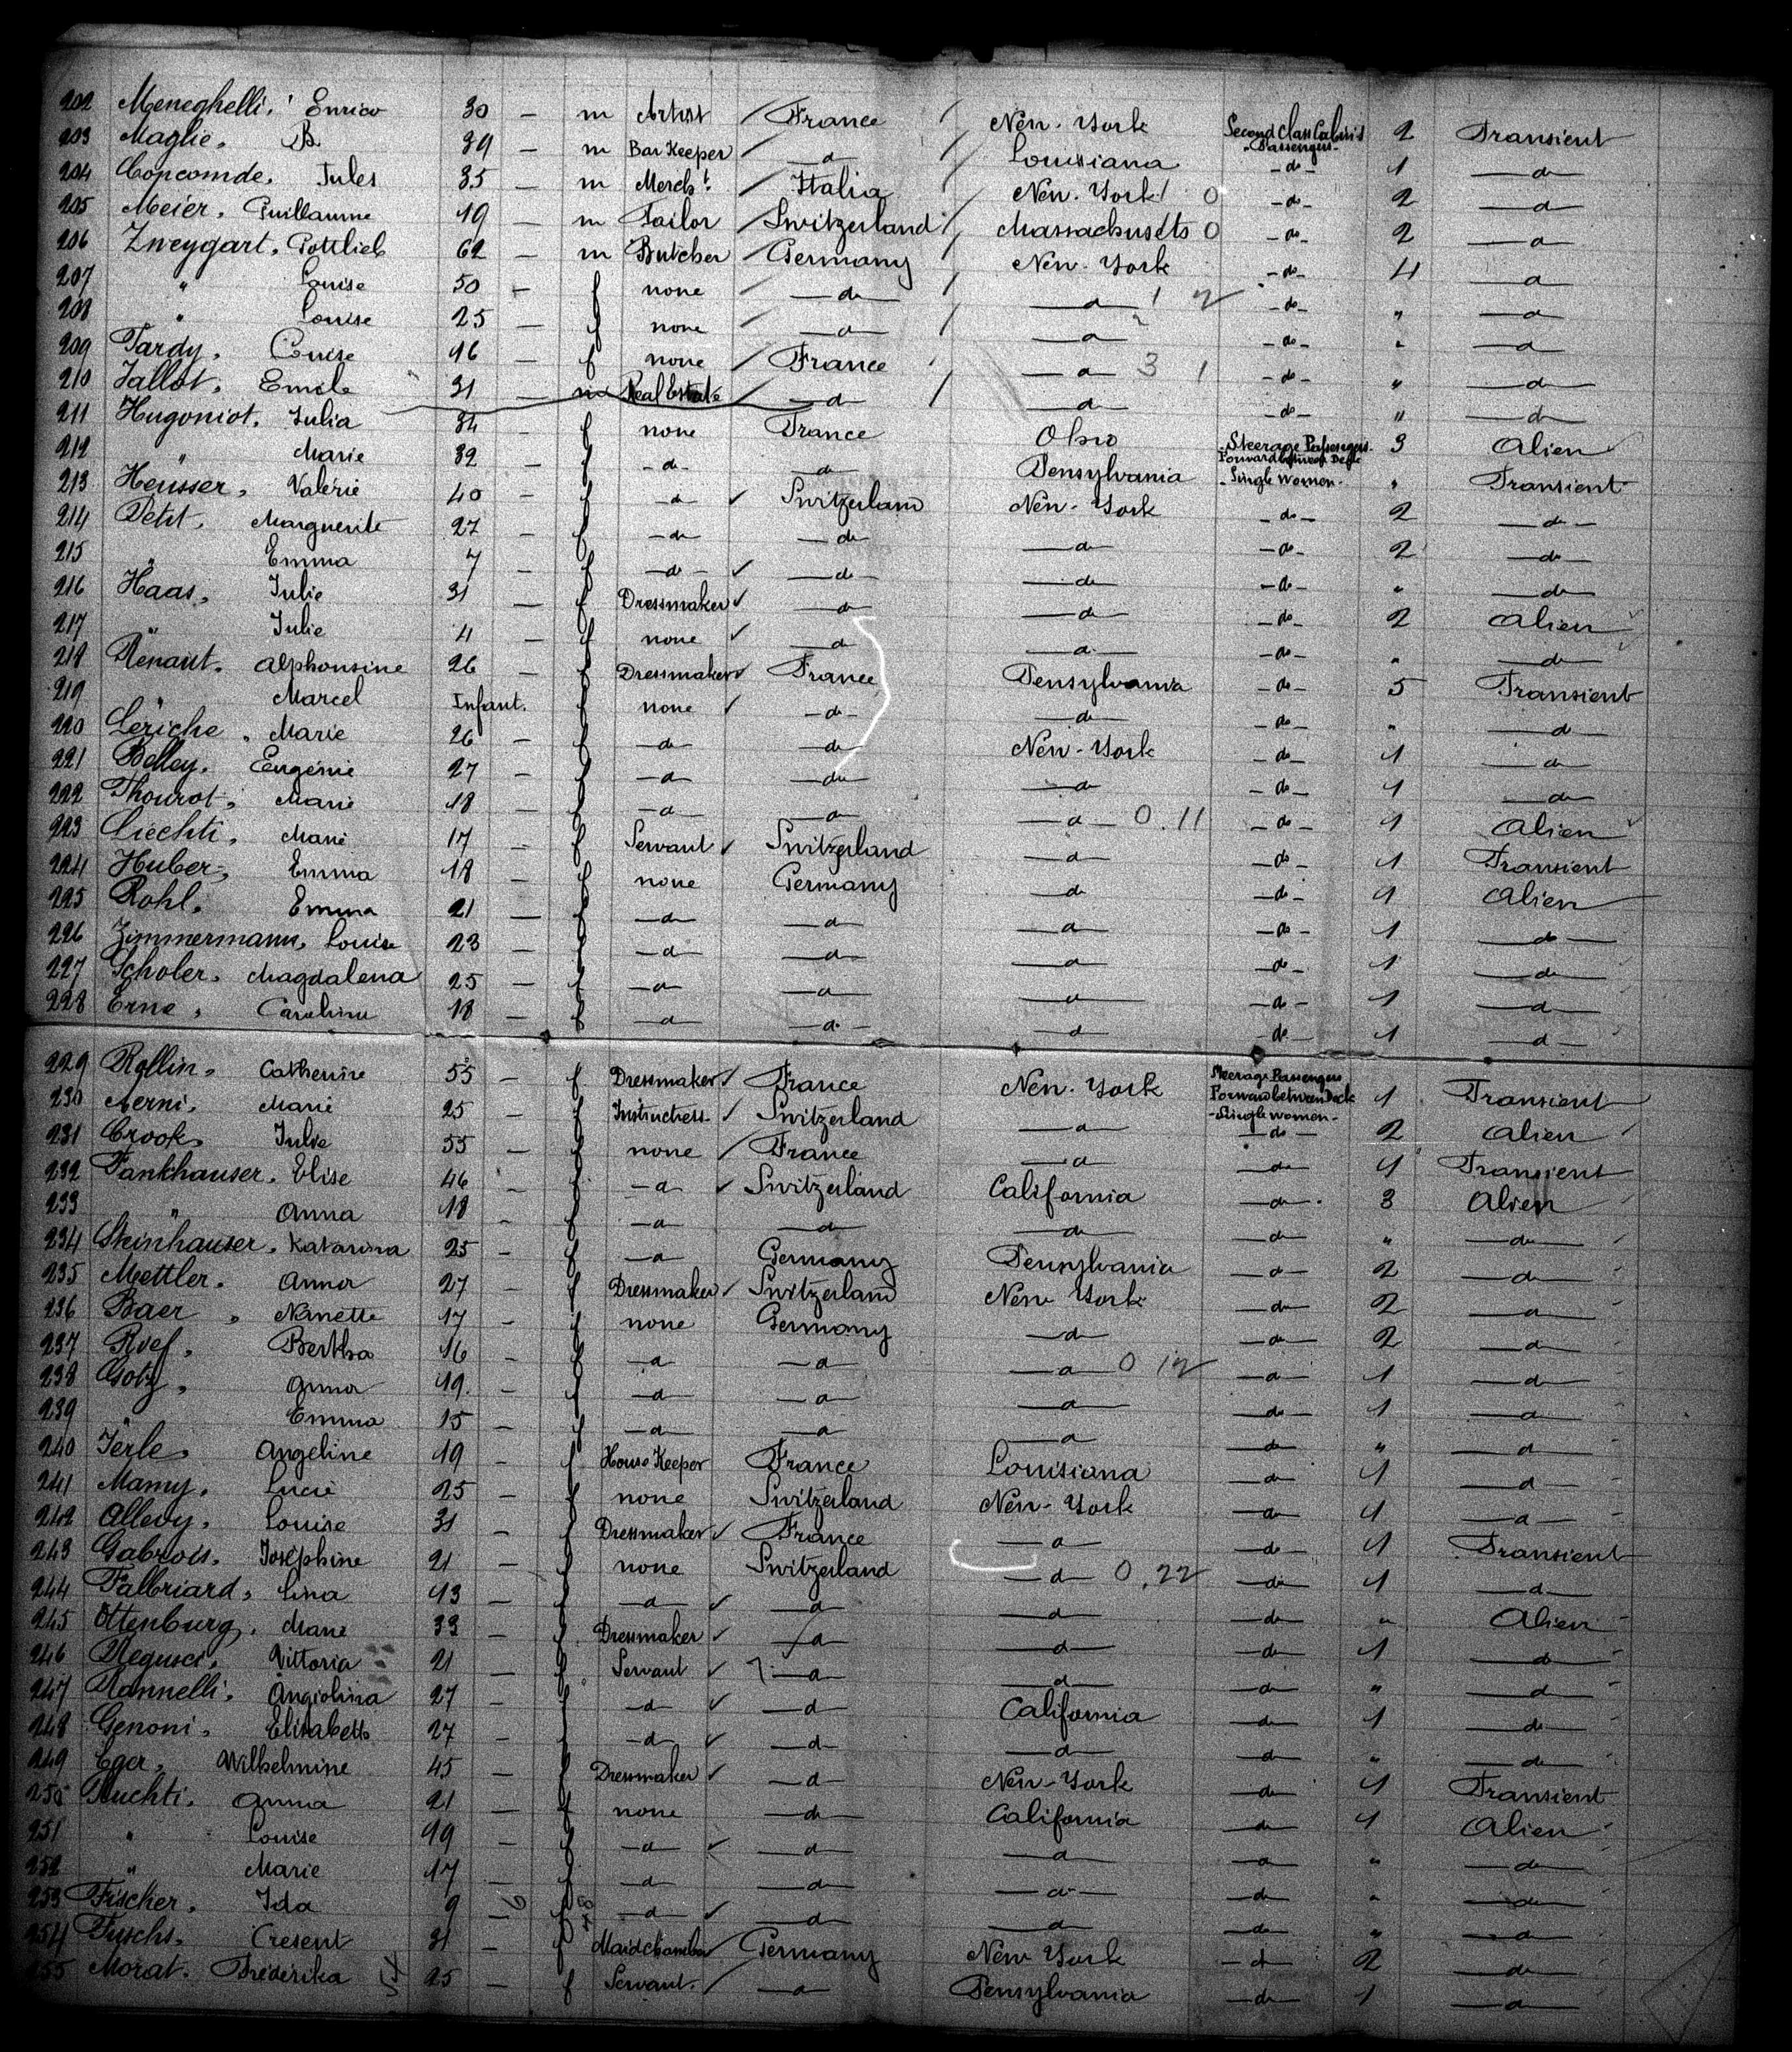 202 Meneghelli, Enrico 30 — m Artist / France / New-York Second Class Cabin's Passengers 2 Transient
203 Maglie, B. 39 — m Bar Keeper / —d— / Louisiana —do— 1 —d—
204 Concomde, Jules 35 — m Mercht. / Italia / New-York 0 —do— 2 —d—
205 Meier, Guillaume 19 — m Tailor / Switzerland / Massachusetts 0 —do— 2 —d—
206 Zweygart, Gottlieb 62 — m Butcher / Germany / New-York —do— 4 —d—
207 " Louise 50 — f none / —do— / —d— 1 2 —do— " —d—
208 " Louise 25 — f none / —d— / —d— —do— " —d—
209 Tardy, Louise 16 — f none / France —d— 3 1 —do— " —d—
210 Jallot, Emile 31 m Real Estate / —d— / —d— —do— " —d—
211 Hugoniot, Julia 34 — f none France Ohio Steerage Passengers Forward between Deck 3 Alien
212 " Marie 32 — f —d— —do— Pensylvania - Single Women - " Transient
213 Heusser, Valérie 40 — f —d— ✓ Switzerland New-York —do— 2 —do—
214 Petit, Marguerite 27 — f —d— —do— —do— —do— 2 —do—
215 " Emma 7 — f —d— ✓ —do— —do— —do— " —do—
216 Haas, Julie 31 — f Dressmaker ✓ —do— —do— —do— 2 Alien
217 " Julie 4 — f none ✓ —d— —d— —do— " —do—
218 Renaut, Alphonsine 26 — f Dressmaker ✓ France Pensylvania —do— 5 Transient
219 " Marcel Infant. f none ✓ —d— —do— —do— " —do—
220 Leriche, Marie 26 — f —do— —do— New-York —do— 1 —d—
221 Belley, Eugénie 27 — f —d— —do— —do— —do— 1 —do—
222 Thourot, Marie 18 — f —d— —d— —d— 0.11 —do— 1 Alien
223 Liechti, Marie 17 — f Servant ✓ Switzerland —d— —do— 1 Transient
224 Huber, Emma 18 — f none Germany —do— —do— 1 Alien
225 Rohl, Emma 21 — f —d— —d— —d— —do— 1 —do—
226 Zimmermann, Louise 23 — f —d— —d— —d— —do— 1 —do—
227 Scholer, Magdalena 25 — f —d— —d— —d— —do— 1 —d—
228 Erne, Caroline 18 — f —d— —d— —d— —do— 1 —d—
229 Rollin, Catherine 55 — f Dressmaker ✓ France New-York Steerage Passengers Forward between Deck 1 Transient
230 Aerni, Marie 25 — f Instructress ✓ Switzerland —d— - Single Women - —do— 2 Alien
231 Crook, Julie 55 — f none / France —d— —do— 1 Transient
232 Fankhauser, Elise 46 — f —d— ✓ Switzerland California —do— 3 Alien
233 " Anna 18 — f —d— —d— —do— —do— " —do—
234 Steinhauser, Katarina 25 — f —d— Germany Pensylvania —d— 2 —do—
235 Mettler, Anna 27 — f Dressmaker ✓ Switzerland New York —do— 2 —d—
236 Baer, Nanette 17 — f none Germany —do— —do— 2 —do—
237 Ruef, Bertha 16 — f —d— —d— —d— 0 12 —d— 1 —do—
238 Gotz, Anna 19 — f —d— —d— —d— —do— 1 —d—
239 " Emma 15 — f —d— —d— —d— —do— " —d—
240 Jerle, Angeline 19 — f House Keeper France Louisiana —do— 1 —d—
241 Mamy, Lucie 25 — f none Switzerland New-York —do— 1 —d—
242 Allevy, Louise 31 — f Dressmaker ✓ France —d— —do— 1 Transient
243 Gabrois, Joséphine 21 — f none Switzerland —d— 0.22 —do— 1 —d—
244 Falbriard, Lina 43 — f —d— ✓ —d— —d— —do— " Alien
245 Ottenburg, Marie 33 — f Dressmaker ✓ —d— —d— —do— 1 —d—
246 Regusci, Vittoria 21 — f Servant ✓ —d— —d— —do— " —do—
247 Nannelli, Angiolina 27 — f —d— ✓ —d— California —do— 1 —do—
248 Genoni, Elisabetta 27 — f —d— ✓ —d— —d— —do— " —do—
249 Eger, Wilhelmine 45 — f Dressmaker ✓ —d— New-York —do— 1 Transient
250 Ruchti, Anna 21 — f none —do— California —do— 1 Alien
251 " Louise 19 — f —d— ✓ —d— —d— —d— " —do—
252 " Marie 17 — f —d— —do— —d— —do— " —do—
253 Fischer, Ida 9 — f —d— ✓ —d— —d— —do— " —d—
254 Fuschs, Cresent 31 — f Maidchamber ✓ Germany New York —d— 2 —do—
255 Morat, Fréderika 25 — f Servant / —d— Pensylvania —do— 1 —d—